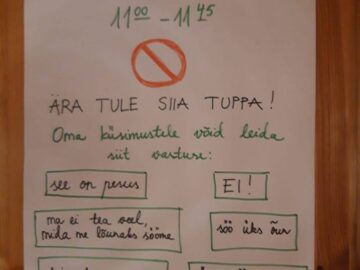 11⁰⁰ – 11⁴⁵
ÄRA TULE SIIA TUPPA!
Oma küsimustele võid leida
siit vastuse:
see on pesus
EI!
ma ei tea veel,
mida me lõunaks sööme
söö üks õun